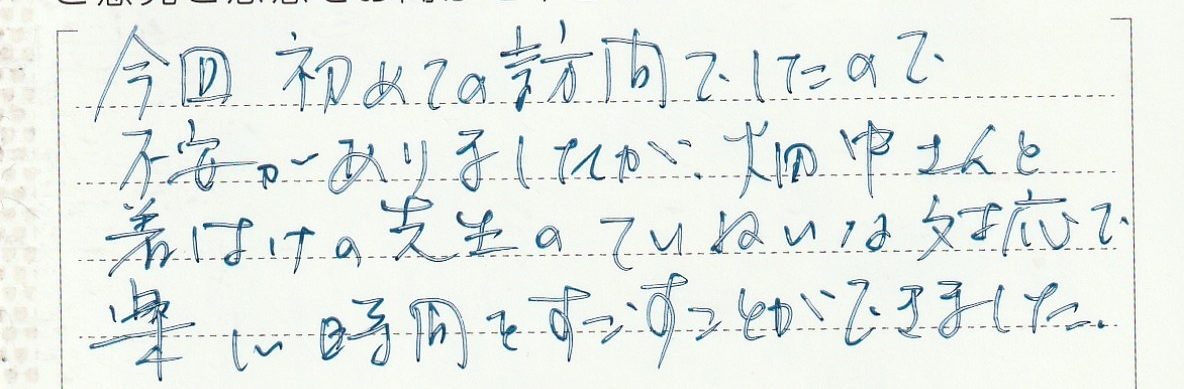 今回 初めての訪問でしたので
不安がありましたが、畑中さんと
着付けの先生のていねいな対応で
楽しい時間をすごすことができました。